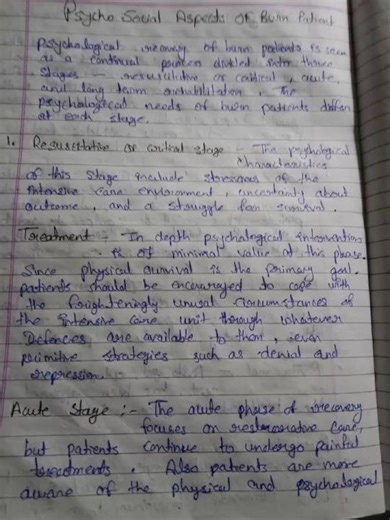 Psycho Social Aspects Of Burn Patient
Psychological recovery of burn patients is seen
as a continual process divided into three
stages - resuscitative or critical, acute,
and long term rehabilitation. The
psychological needs of burn patients differ
at each stage.
1. Resuscitative or critical stage - The psychological
characteristics
of this stage include stressors of the
intensive care environment, uncertainty about
outcome, and a struggle for survival.
Treatment - In depth psychological intervention
is of minimal value at this phase.
Since physical survival is the primary goal.
patients should be encouraged to cope with
the frighteningly unusal circumstances of
the intensive care unit through whatever
Defences are available to them, even
primitive strategies such as denial and
repression.
Acute Stage :- The acute phase of recovery
focuses on restorative care,
but patients continue to undergo painful
treatments. Also patients are more
aware of the physical and psychological